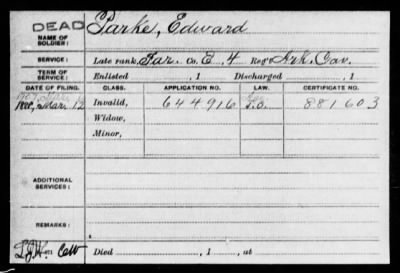 DEAD
NAME OF SOLDIER: Parke, Edward
SERVICE: Late rank, Far. Co. E, 4 Reg't Ark. Cav.
TERM OF SERVICE: Enlisted , 1 Discharged , 1
DATE OF FILING. CLASS. APPLICATION NO. LAW. CERTIFICATE NO.
Mar. 12 Invalid, 644916 881603
Widow,
Minor,
ADDITIONAL SERVICES:
REMARKS:
Died , 1 , at